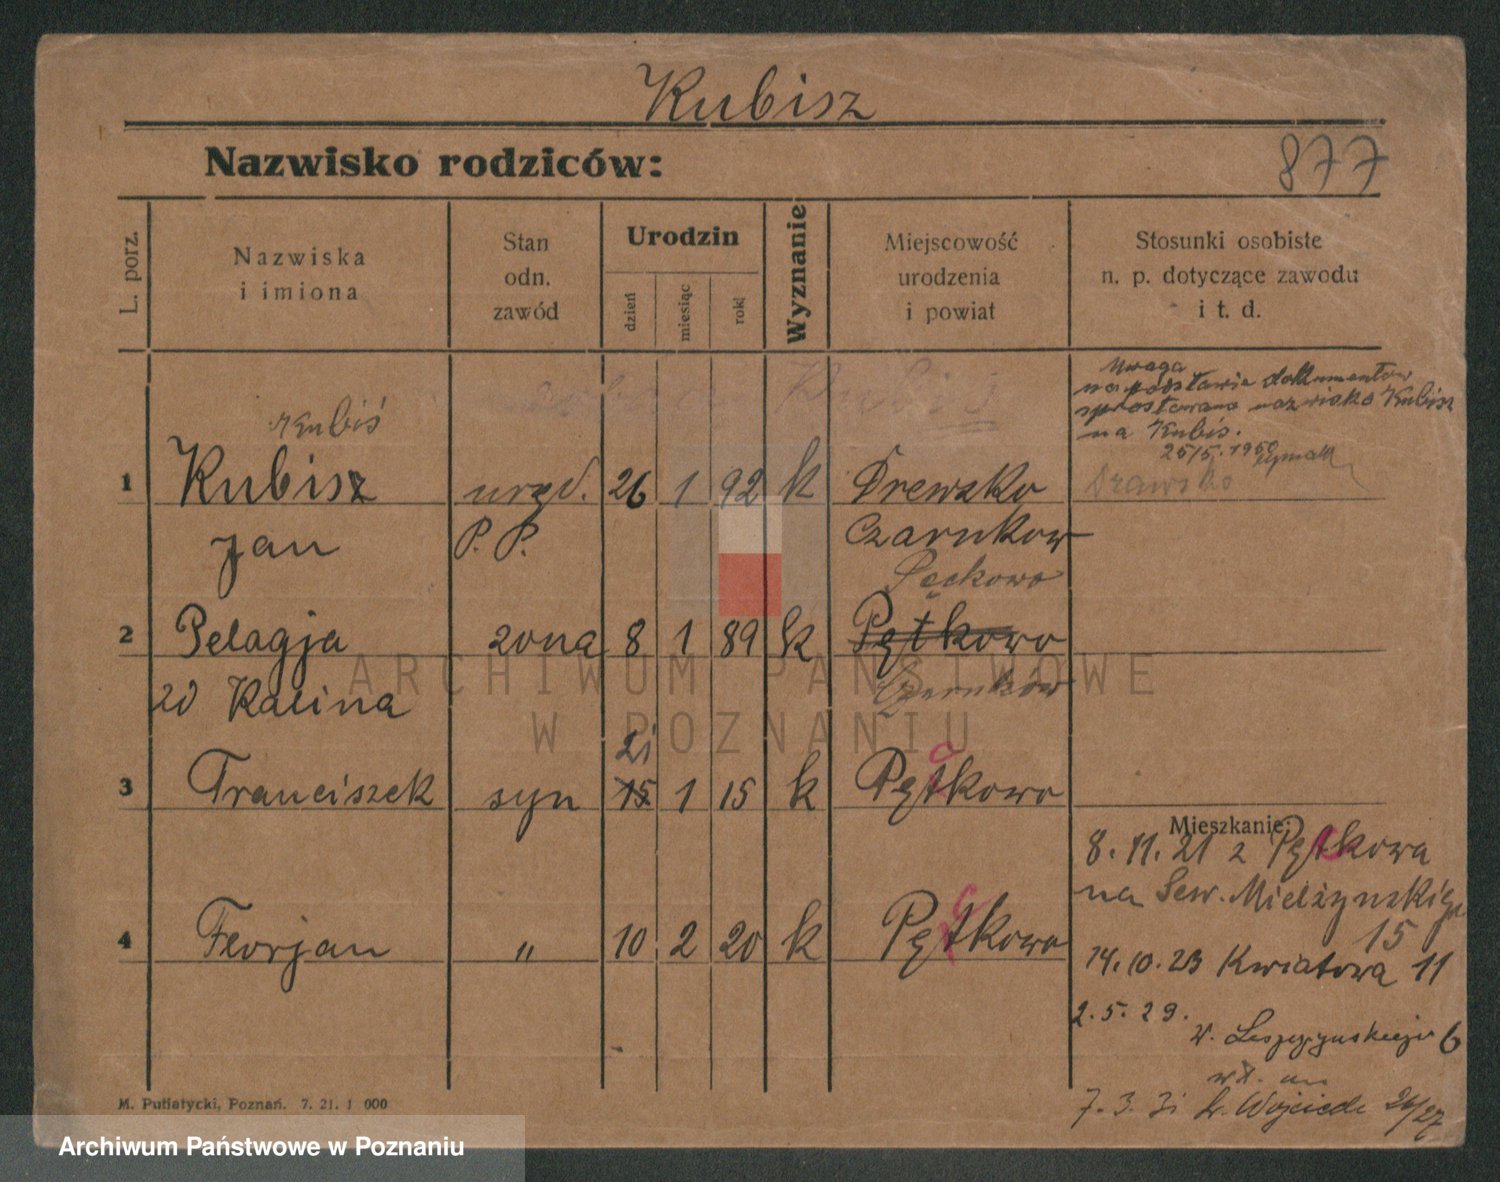 Kubisz
Nazwisko rodziców:
877
L. porz.
Nazwiska
i imiona
Stan
odn.
zawód
Urodzin
dzień
miesiąc
rok
Wyznanie
Miejscowość
urodzenia
i powiat
Stosunki osobiste
n. p. dotyczące zawodu
i t. d.
Uwaga
na podstawie dokumentów
sprostowano nazwisko Kubisz
na Kubiś.
25/5. 1950
Kubiś
1 Kubisz urzęd. 26 1 92 k Drewsko
Drawsko
Jan P. P. Czarnkow
Pęckowo
2 Pelagja żona 8 1 89 k Pętkowo
zd Kalina Czarnkow
21
3 Franciszek syn 15 1 15 k Pętkowo
c
Mieszkanie:
8. 11. 21 z Pętkowa
na Sew. Mielżynskiego
15
4 Florjan " 10 2 20 k Pętkowo
c
14. 10. 23 Kwiatowa 11
2. 5. 29.
6
7. 3. 31 św. Wojciech 26/27
M. Putiatycki, Poznań. 7. 21. 1 000
ARCHIWUM PAŃSTWOWE
W POZNANIU
Archiwum Państwowe w Poznaniu